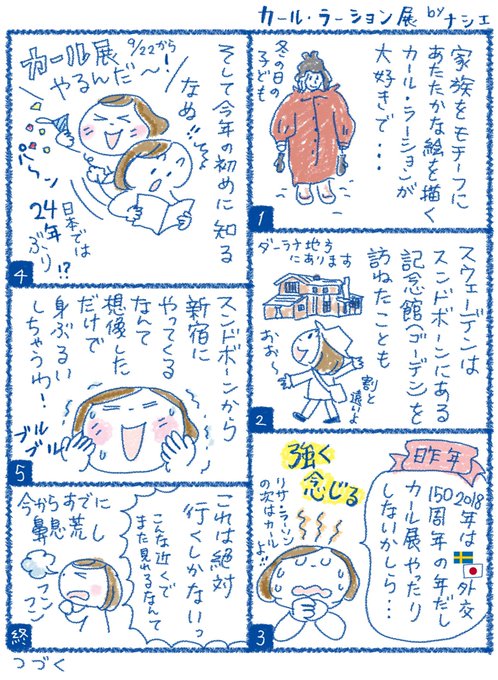 カール・ラーション展 by ナシエ
家族をモチーフに
あたたかな絵を描く
カール・ラーションが
大好きで・・・
冬の日の
子ども
1
スウェーデンは
スンドボーンにある
記念館（ゴーデン）を
訪ねたことも
ダーラナ地方
にあります
おぉ〜
割と
遠いよ
2
昨年
2018年は外交
150周年の年だし
カール展やったり
しないかしら・・・
強く
念じる
リサ・ラーソン
の次はカール
よ!!
3
そして今年の初めに知る
なぬ!!
9/22から
カール展
やるんだ〜!
パーン
日本では
24年
ぶり!?
4
スンドボーンから
新宿に
やってくる
なんて
想像した
だけで
身ぶるい
しちゃうわ!
ブル
ブル
5
これは絶対
行くしかないっ
こんな近くで
また見れるなんて
今からすでに
鼻息荒し
フン
フン
終
つづく